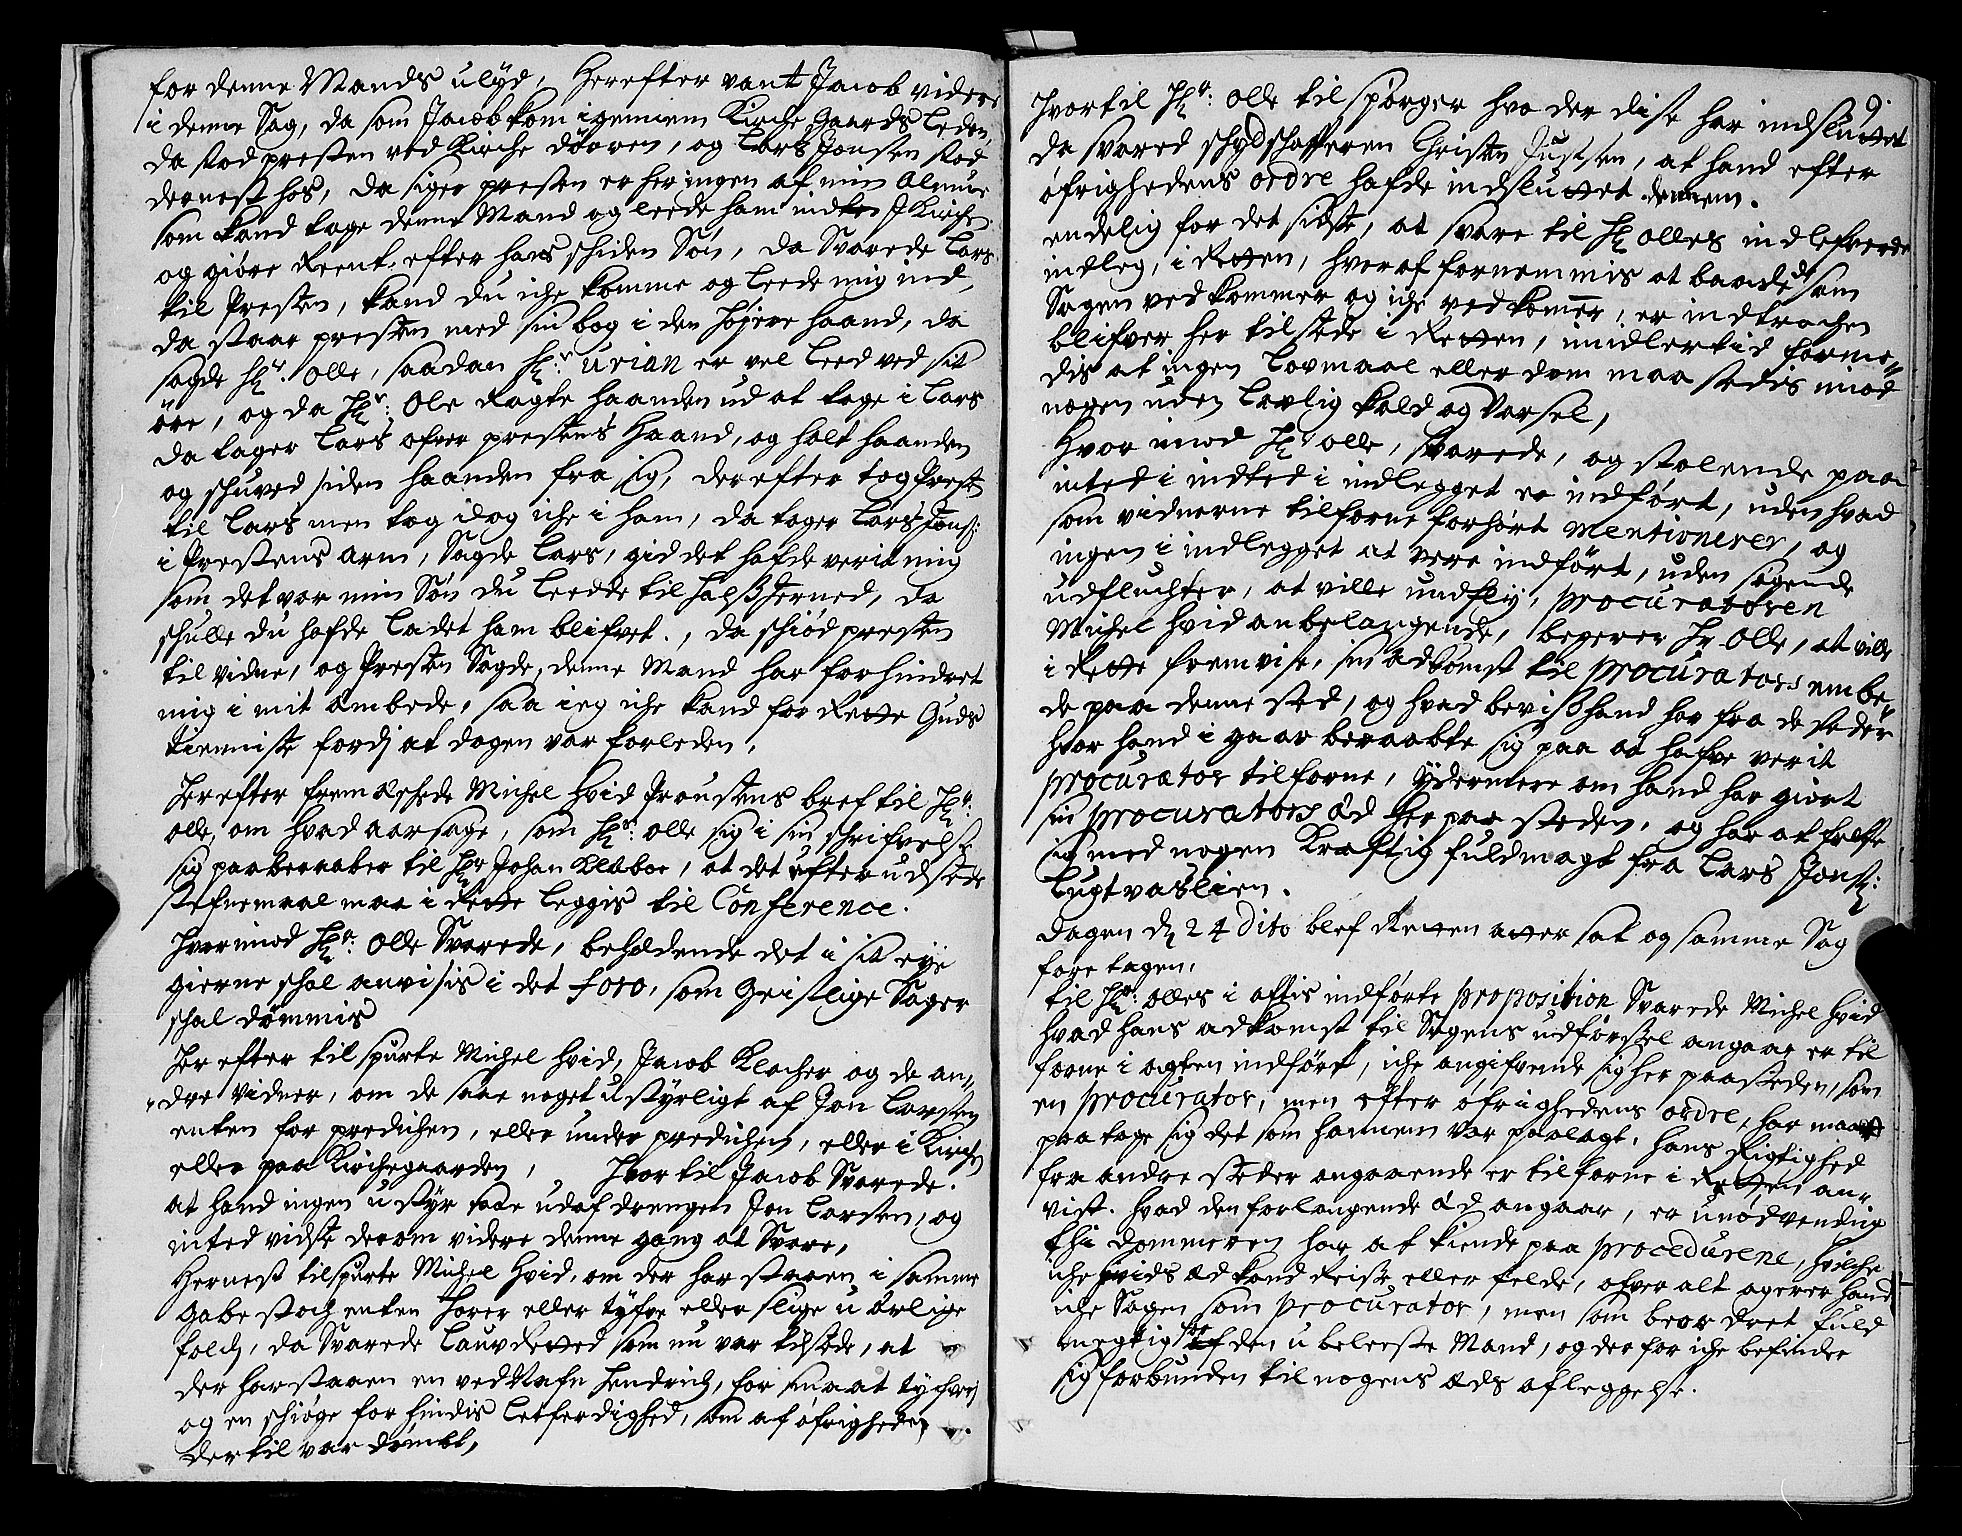 for denne Mands ulyd, Herefter vant Jacob videre
i denne Sag, da som Jacob kom igeniem Kirche Gaards Leden,
da stod presten ved Kirche dören, og Lars Jonsen stod
dernest hos, da siger presten er her ingen af min Almue
som kand tage denne Mand og leede ham ind i Kirchen
og giöre Reent efter hans schiden Sön, da Svarede Lars
til Presten, kand du iche komme og leede mig ind,
da staar presten med sin bog i den höjere haand, da
sagde Hr: Olle, saadan Hr: Urian er vel leed ved sit
öre, og da Hr: Ole Ragte haanden ud at tage i Lars
da tager Lars ofver prestens Haand, og holt haanden
og schuved siden haanden fra sig, derefter tog Prest
til Lars men tog dog iche i ham, da tager Lars Jons:
i Prestens arm, Sagde Lars, gid det hafde verit mig
som det var min Sön du leedde til halsjerned, da
schulle du hafde ladet ham blifvet., da schiöd presten
til vidne, og Presten Sagde, denne Mand har forhindret
mig i mit Ambede, saa ieg iche kand forrette Guds
tienniste fordj at dagen var forleden,
Herefter fremæschede Michel Hvid Proustens bref til Hr:
Olle, om hvad aarsage, som Hr: Olle sig i sin schrifvelse
sig paaberaaber til Hr Johan Klæboe, at det efter udstede
stefnemaal maa i Rette leggis til Conference.
Hvorimod Hr: Olle Svarede, beholdende det i sit eye
gierne schal anvisis i det foro, som Geistlige Sager
schal dömmis
Herefter tilspurte Michel Hvid, Jacob Klocher og de an„
„dre vidner, om de saae noget ustyrligt af Jon Larsen
enten for predichen, eller under predichen, eller i Kirchen
eller paa Kirchegaarden, Hvortil Jacob Svarede.
at hand ingen ustyr saae udaf drengen Jon Larsen, og
inted vidste derom videre denne gang at Svare,
Hernest tilspurte Michel Hvid, om der har staaen i samme
Gabestoch enten Horer eller tyfve eller slige u ærlige
folch, da Svarede Lauv Retted som nu var tilstede, at
der har staaen en ved Nafn Hendrich, for smaat tychveri
og en schiöge for hindis letferdighed, som af öfrigheden
dertil var dömbt,
9.
Hvortil Hr: Olle tilspörger hvo der dise har indsluttet
da svared schydschafferen Christen Justsen, at hand efter
öfrighedens ordre hafde indsluttet dennem.
endelig for det sidste, at svare til Hr Olles indlefverede
indleg, i Retten, hveraf fornemmis at baade de som
Sagen vedkommer og iche vedkomer, er indtrachen
blifver her tilstede i Retten, imidlertid forme„
dis at ingen Lovmaal eller dom maa stedis imod
nogen uden Lovlig Kald og Varsel,
Hvor imod Hr Olle, svarede, og stolende paa
inted i indted i indlegget er indfört, uden hvad
som vidnerne tilforne forhört mentionerer, og
ingen i indlegget at vere indfört, uden sögende
udfluchter, at ville undfly, procuratoren
Michel Hvid anbelangende, begerer Hr Olle, at ville
i Rette fremvise, sin adkomst til procurators embe„
de paa denne sted, og hvad bevis hand har fra de steder
hvor hand i gaar beraabte sig paa at hafve verit
procurator tilforne, ydermere om hand har giort
sin procurators Æd her paa stæden, og har at træffe
sig med nogen Kraftig fuldmagt fra Lars Jons:
Lugtvaslien.
dagen d 24 dito blef Retten atter sat og samme Sag
foretagen,
til Hr: Olles i actis indförte proposition Svarede Michel Hvid
hvad hans adkomst til Sagens udförsel angaar er til
forne i agten indfört, iche angifvende sig her paa steden, som
en procurator, men efter öfrighedens ordre, har maatt
paatage sig det som hannem var paalagt, hans Rigtighed
fra andre steder angaaende er tilforne i Retten an„
vist. hvad den forlangende Æd angaar, er unödvendig
thi dommeren har at kiende paa procedurene, hvilche
iche hvids Æd kand Reise eller felde, ofver alt agerer hand
iche Sagen som procurator, men som beordret fuld
megtig for den u beleeste Mand, og der for iche befinder
sig forbunden til nogens Æds afleggelse.